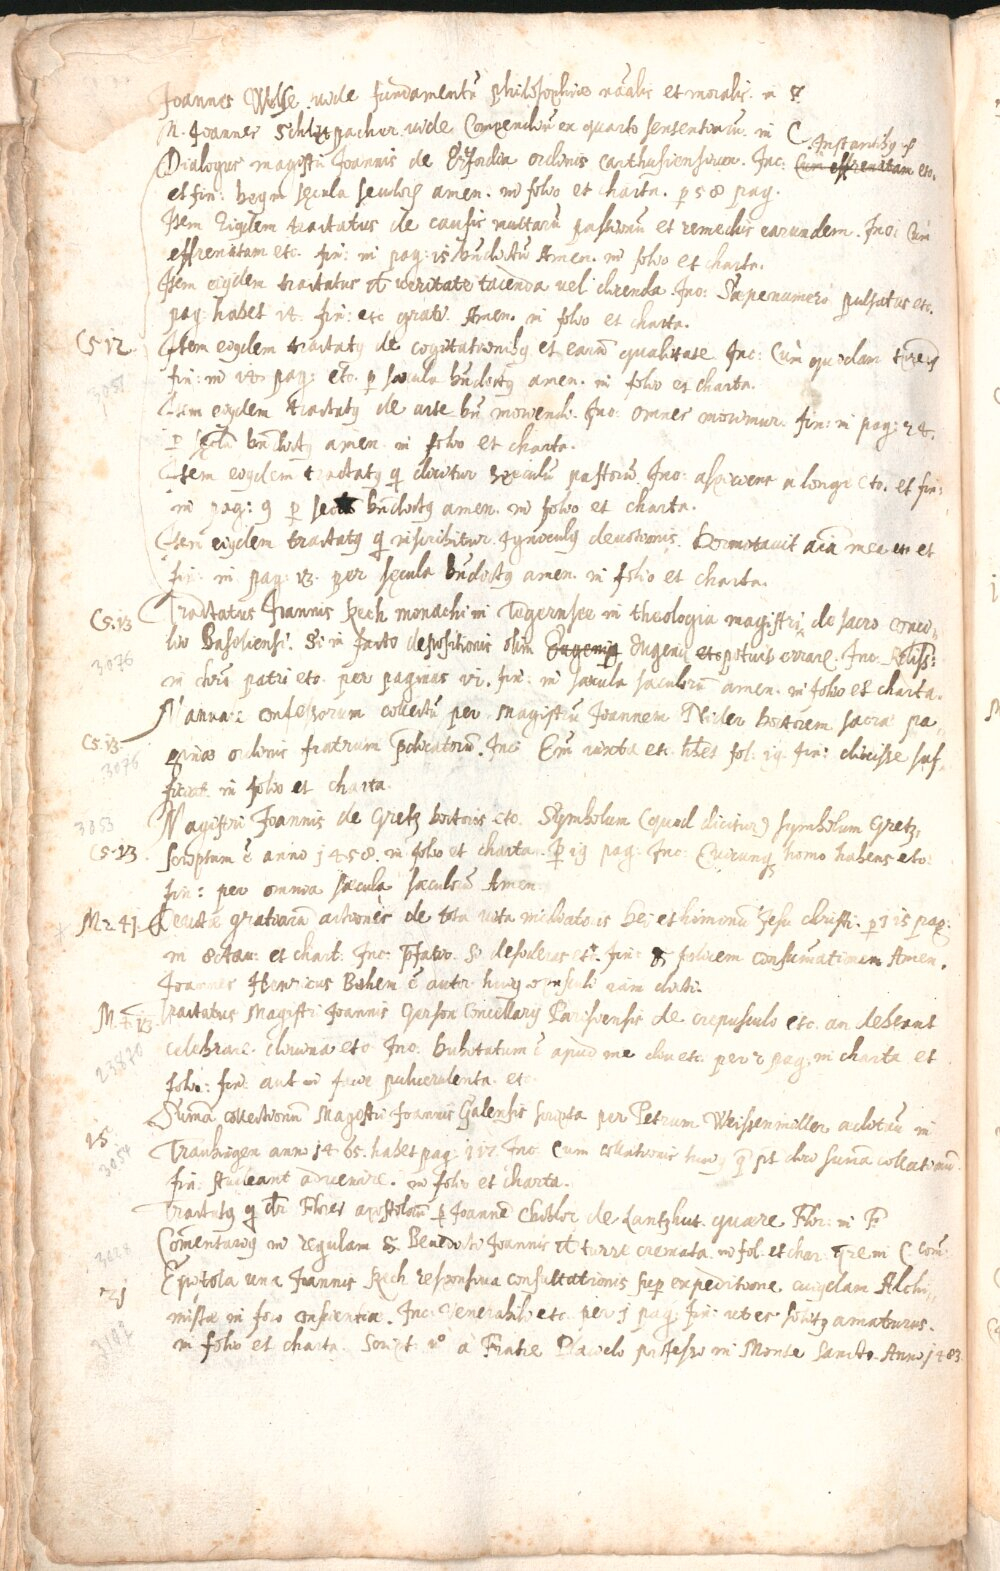 Joannes Wolfe vide fundamentū philosophiæ nāalis et moralis. in F.
M. Joannes Schlitpacher vide Compendiū ex quarto sententiarū. in C.
Instantibus
Dialogus magistri Joannis de Erfordia ordinis carthusiensium. Inc: Cum effrenatam etc.
et fin: secula seculorū amen. in folio et charta. p 58 pag.
Item Eiusdem tractatus de causis multarū passionū et remediis earundem. Inc: Cum
effrenatam etc. fin: in pag: 15 bn̄dictū Amen. in folio et charta.
Item eiusdem tractatus de veritate tacenda vel dicenda. Inc: Sæpenumero pulsatus etc.
pag: habet 14. fin: etc grati. Amen. in folio et charta.
C5.12. Item eiusdem tractatq de cogitationibq et earū qualitate Inc: Cum quodam
3051 fin: in 14 pag: etc. p sæcula bn̄dictq amen. in folio et charta.
Item eiusdem tractatq de arte bn̄ moriendi. Inc: omnes morimur. fin: in pag: 24.
p secula bn̄dictq amen. in folio et charta.
Item eiusdem tractatq q dicitur speculū pastorū. Inc: aspiciens a longe etc. et fin:
in pag: 9 p bn̄dictq amen. in folio et charta.
Item eiusdem tractatq q inscribitur Igniculq devotionis. Dormitavit aīa mea etc et
fin: in pag: 13. per secula bn̄dictq amen. in folio et charta.
C5.13 Tractatus Joannis Keck monachi in Tegernsee in theologia magistri, de sacro conci-
3076 lio Basiliensi. Si in facto depositionis olim Eugenij Eugenij etc potuit errare. Inc.
in chrō patri etc. per paginas vi. fin: in sæcula sæculorū amen. in folio et charta.
C5.13. Manuale confessorum collectū per Magistrū Joannem Nider doctorem sacræ pa-
3076 ginæ ordinis fratrum p̄dicatorū. Inc. Eīn iuxta etc. hēt fol: 19. fin: dixisse suf-
ficiat. in folio et charta.
3053 Magistri Joannis de Gretz doctoris etc. Symbolum (quod dicitur) symbolum Gretz,
C5.13. scriptum ē anno 1458. in folio et charta. P 19 pag: Inc: Quicunq homo habens etc:
fin: per omnia sæcula sæculorū Amen.
M 241. gratiarū actiones de tota vita mediatoris Dei et hominū Jesu christi. p 315 pag:
in octav: et chart: Inc: p̄fatio. Si desideras etc. fin: felicem consumationem Amen.
Joannes Henricus Behem ē autor huiq opusculi iam dicti.
M. F. 13 Tractatus Magistri Joannis Gerson Cancellarij Parisiensis de crepusculo etc. an debeant
23870 celebrare divina etc. Inc: Dubitatum ē apud me diu etc. per 2 pag. in charta et
folio: fin: aut in fauce pulverulenta. etc.
15 Suma collectionū Magistri Joannis Galensis scripta per Petrum Weissenmiller aedituū in
3054 Traubingen anno 1465. habet pag: 117. Inc. Cum collationis
fin: studeant advenire. in folio et charta.
Tractatq q dr̄ Flores apostolorū p Joannē Chibler de Lantzhut. quære Flor: in F
3028 Comentariq in regulam S. Benedicti Joannis de turre cremata. in fol. et char. qre in C. com:
21 Epistola una Joannis Keck responsiva consultationis super expeditione cuiusdam Alchi-
3197 mistæ in foro conscientiæ. Inc: Venerabili etc. per 1 pag: fin: amaturus.
in folio et charta. Script: a Fratre Placido professo in Monte Sancto. Anno 1483